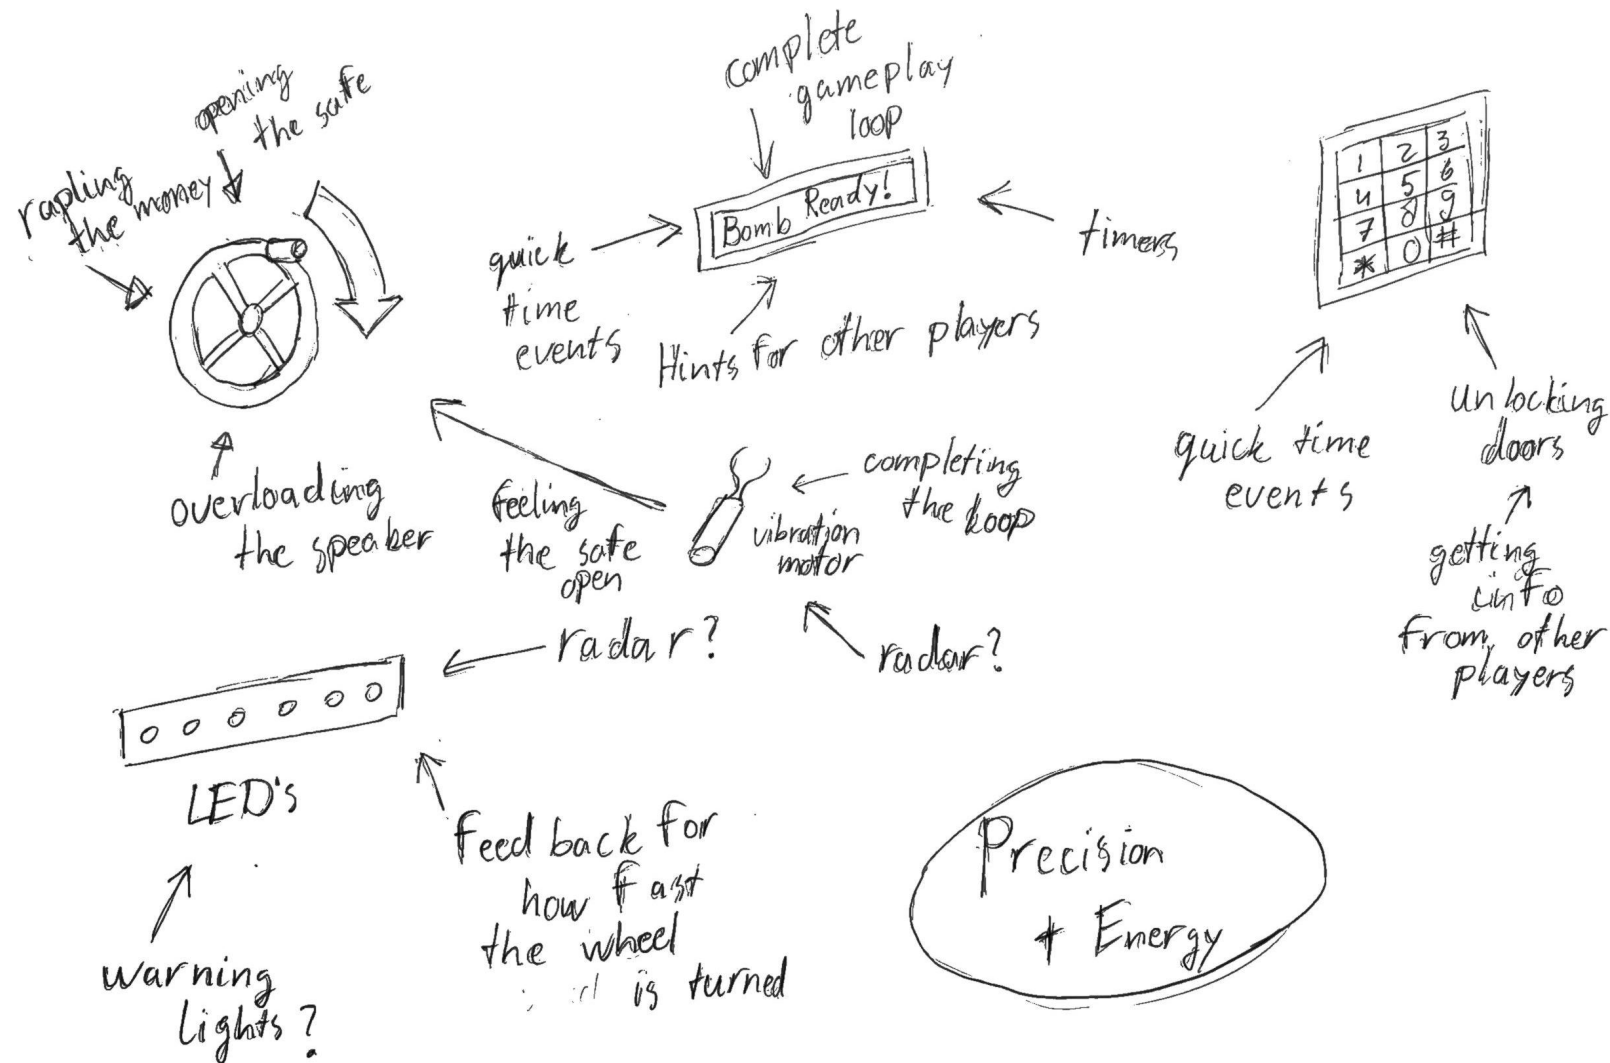 opening
the safe
rapling
the money
complete
gameplay
loop
Bomb Ready!
quick
time
events
timers
Hints for other players
1 2 3
4 5 6
7 8 9
* 0 #
quick time
events
unlocking
doors
getting
info
from other
players
overloading
the speaker
feeling
the safe
open
vibration
motor
completing
the loop
radar?
radar?
LED's
warning
lights?
Feedback for
how fast
the wheel
is turned
Precision
+ Energy